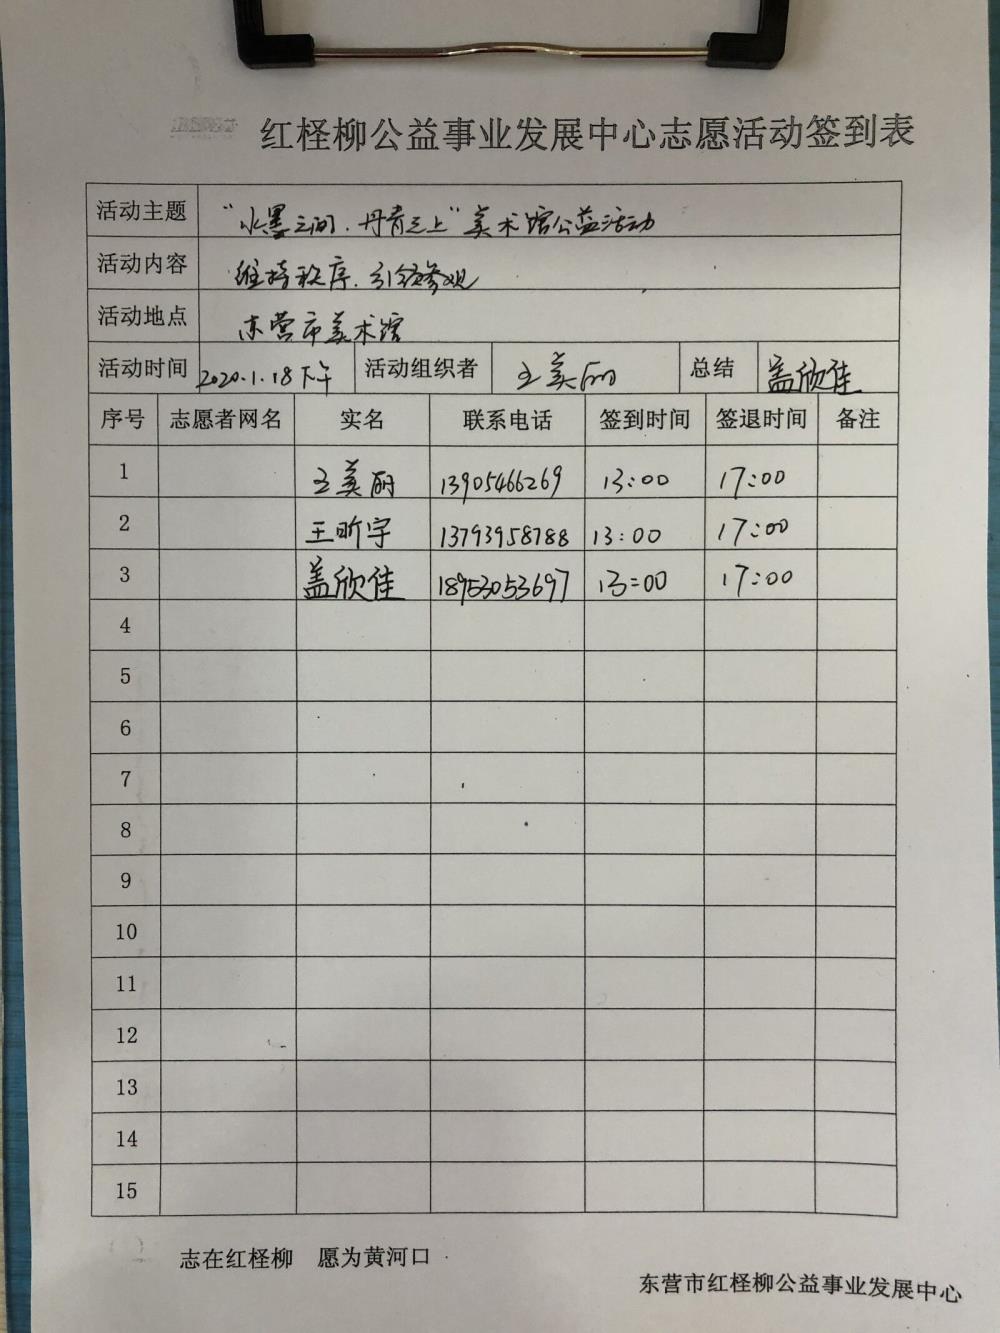 红柽柳公益事业发展中心志愿活动签到表
活动主题 “水墨之间.丹青之上”美术馆公益活动
活动内容 维持秩序.引领参观
活动地点 东营市美术馆
活动时间 2020.1.18下午 活动组织者 王美丽 总结 盖欣佳
序号 志愿者网名 实名 联系电话 签到时间 签退时间 备注
1 王美丽 13905466269 13:00 17:00
2 王昕宇 13793958788 13:00 17:00
3 盖欣佳 18953053697 13:00 17:00
4
5
6
7
8
9
10
11
12
13
14
15
志在红柽柳 愿为黄河口
东营市红柽柳公益事业发展中心